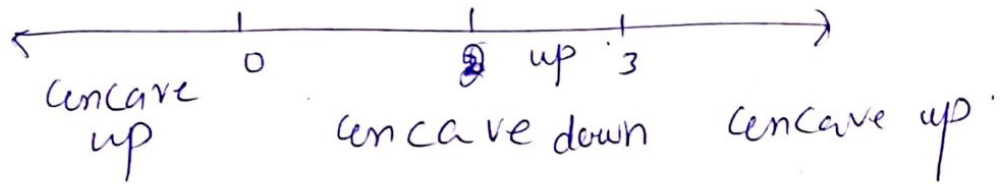 0 2 up 3
concave concave down concave up
up